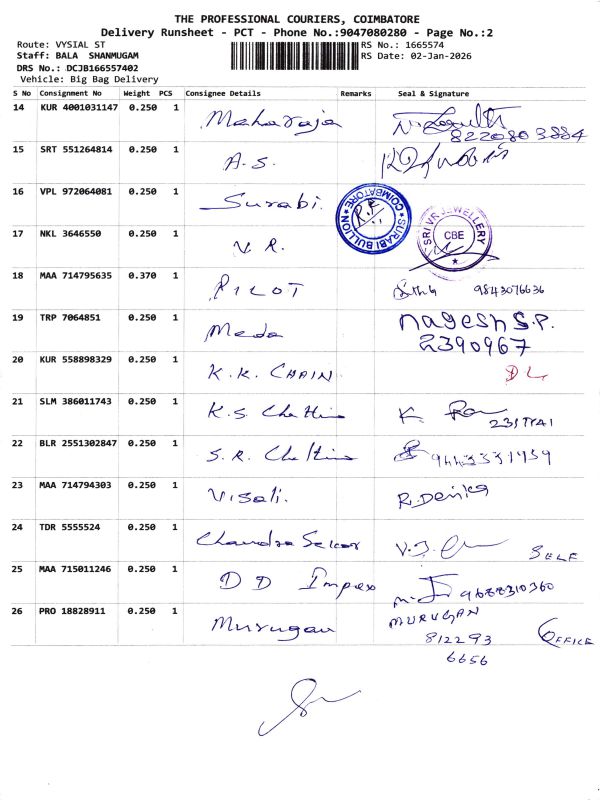 THE PROFESSIONAL COURIERS, COIMBATORE
Delivery Runsheet - PCT - Phone No.:9047080280 - Page No.:2
Route: VYSIAL ST
RS No.: 1665574
Staff: BALA SHANMUGAM
RS Date: 02-Jan-2026
DRS No.: DCJB166557402
Vehicle: Big Bag Delivery
S No Consignment No Weight PCS Consignee Details Remarks Seal & Signature
14 KUR 4001031147 0.250 1 Maharaja
8220803884
15 SRT 551264814 0.250 1 A.S.
16 VPL 972064081 0.250 1 Surabi.
SURABI BULLION COIMBATORE
SRI VR JEWELLERY
CBE
17 NKL 3646550 0.250 1 V R.
18 MAA 714795635 0.370 1 PILOT 9843076636
19 TRP 7064851 0.250 1 Meda Nagesh S.P.
2390967
20 KUR 558898329 0.250 1 K.K. CHAIN DL
21 SLM 386011743 0.250 1 K.S. Chettiar K
22 BLR 2551302847 0.250 1 S.R. Chettiar
23 MAA 714794303 0.250 1 Visali. R.Devika
24 TDR 5555524 0.250 1 Chandra Sekar V.J. SELF
25 MAA 715011246 0.250 1 D D Impex 9688310360
26 PRO 18828911 0.250 1 Murugan MURUGAN
812293 OFFICE
6656